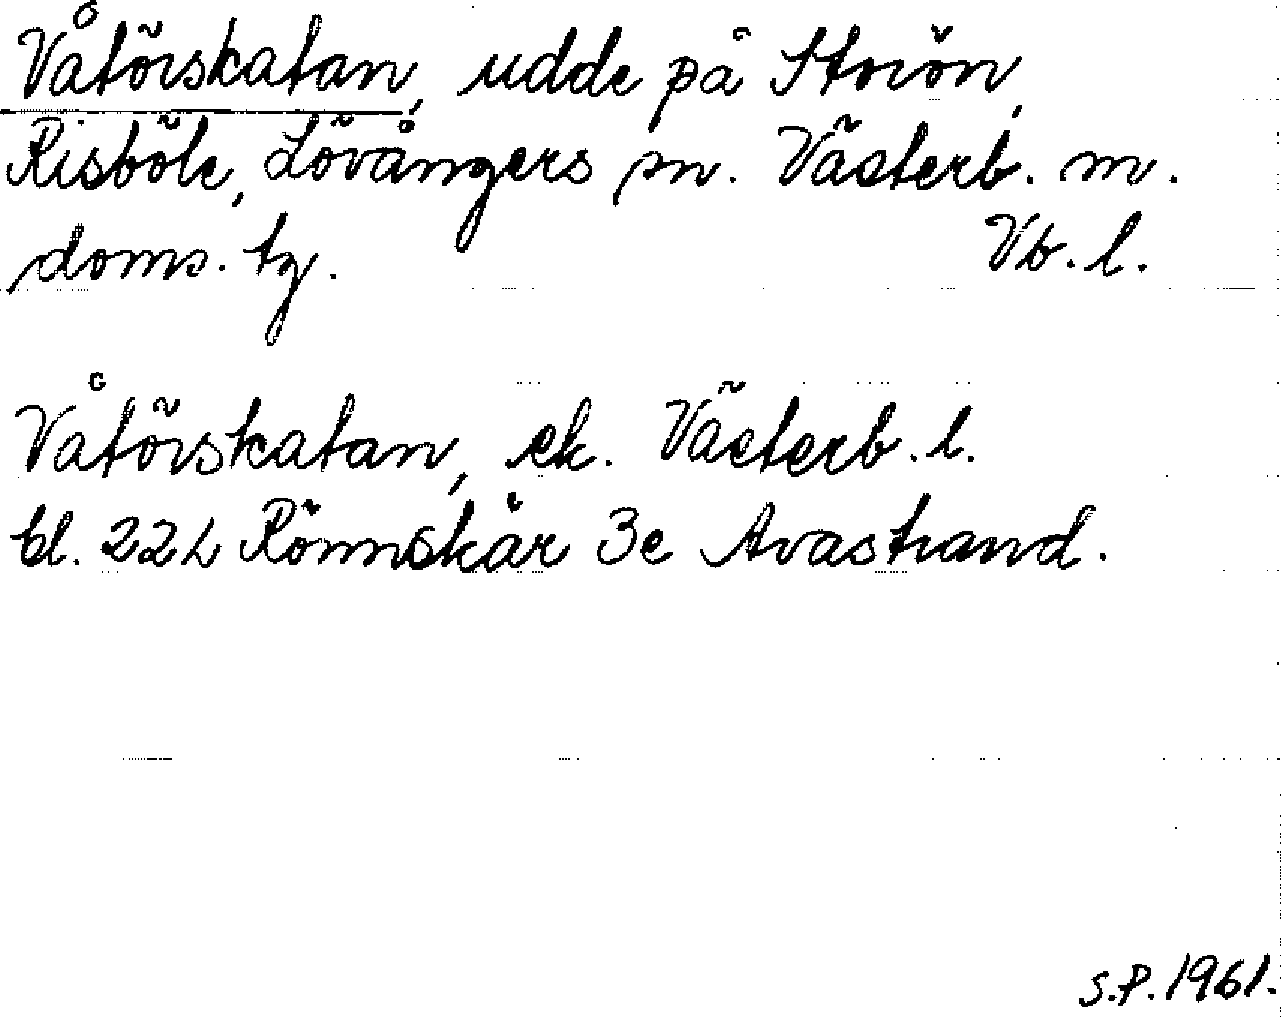 Våtörskatan, udde på Storön,
Risböle, Lövångers sn. Västerb. m.
doms. tg. Vb. l.
Våtörskatan, ek. Västerb. l.
bl. 22 L Rönnskär 3e Avastrand.
S.P. 1961.